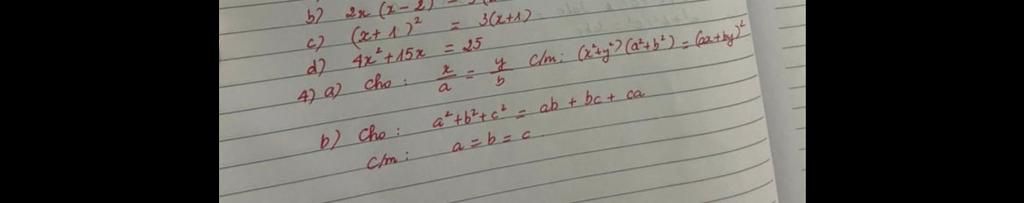 b) 2x (x - 2)
c) (x + 1)² = 3(x+1)
d) 4x² + 15x = 25
4) a) Cho : x/a = y/b c/m : (x²+y²)(a²+b²) = (ax+by)²
b) Cho : a² + b² + c² = ab + bc + ca
c/m : a = b = c